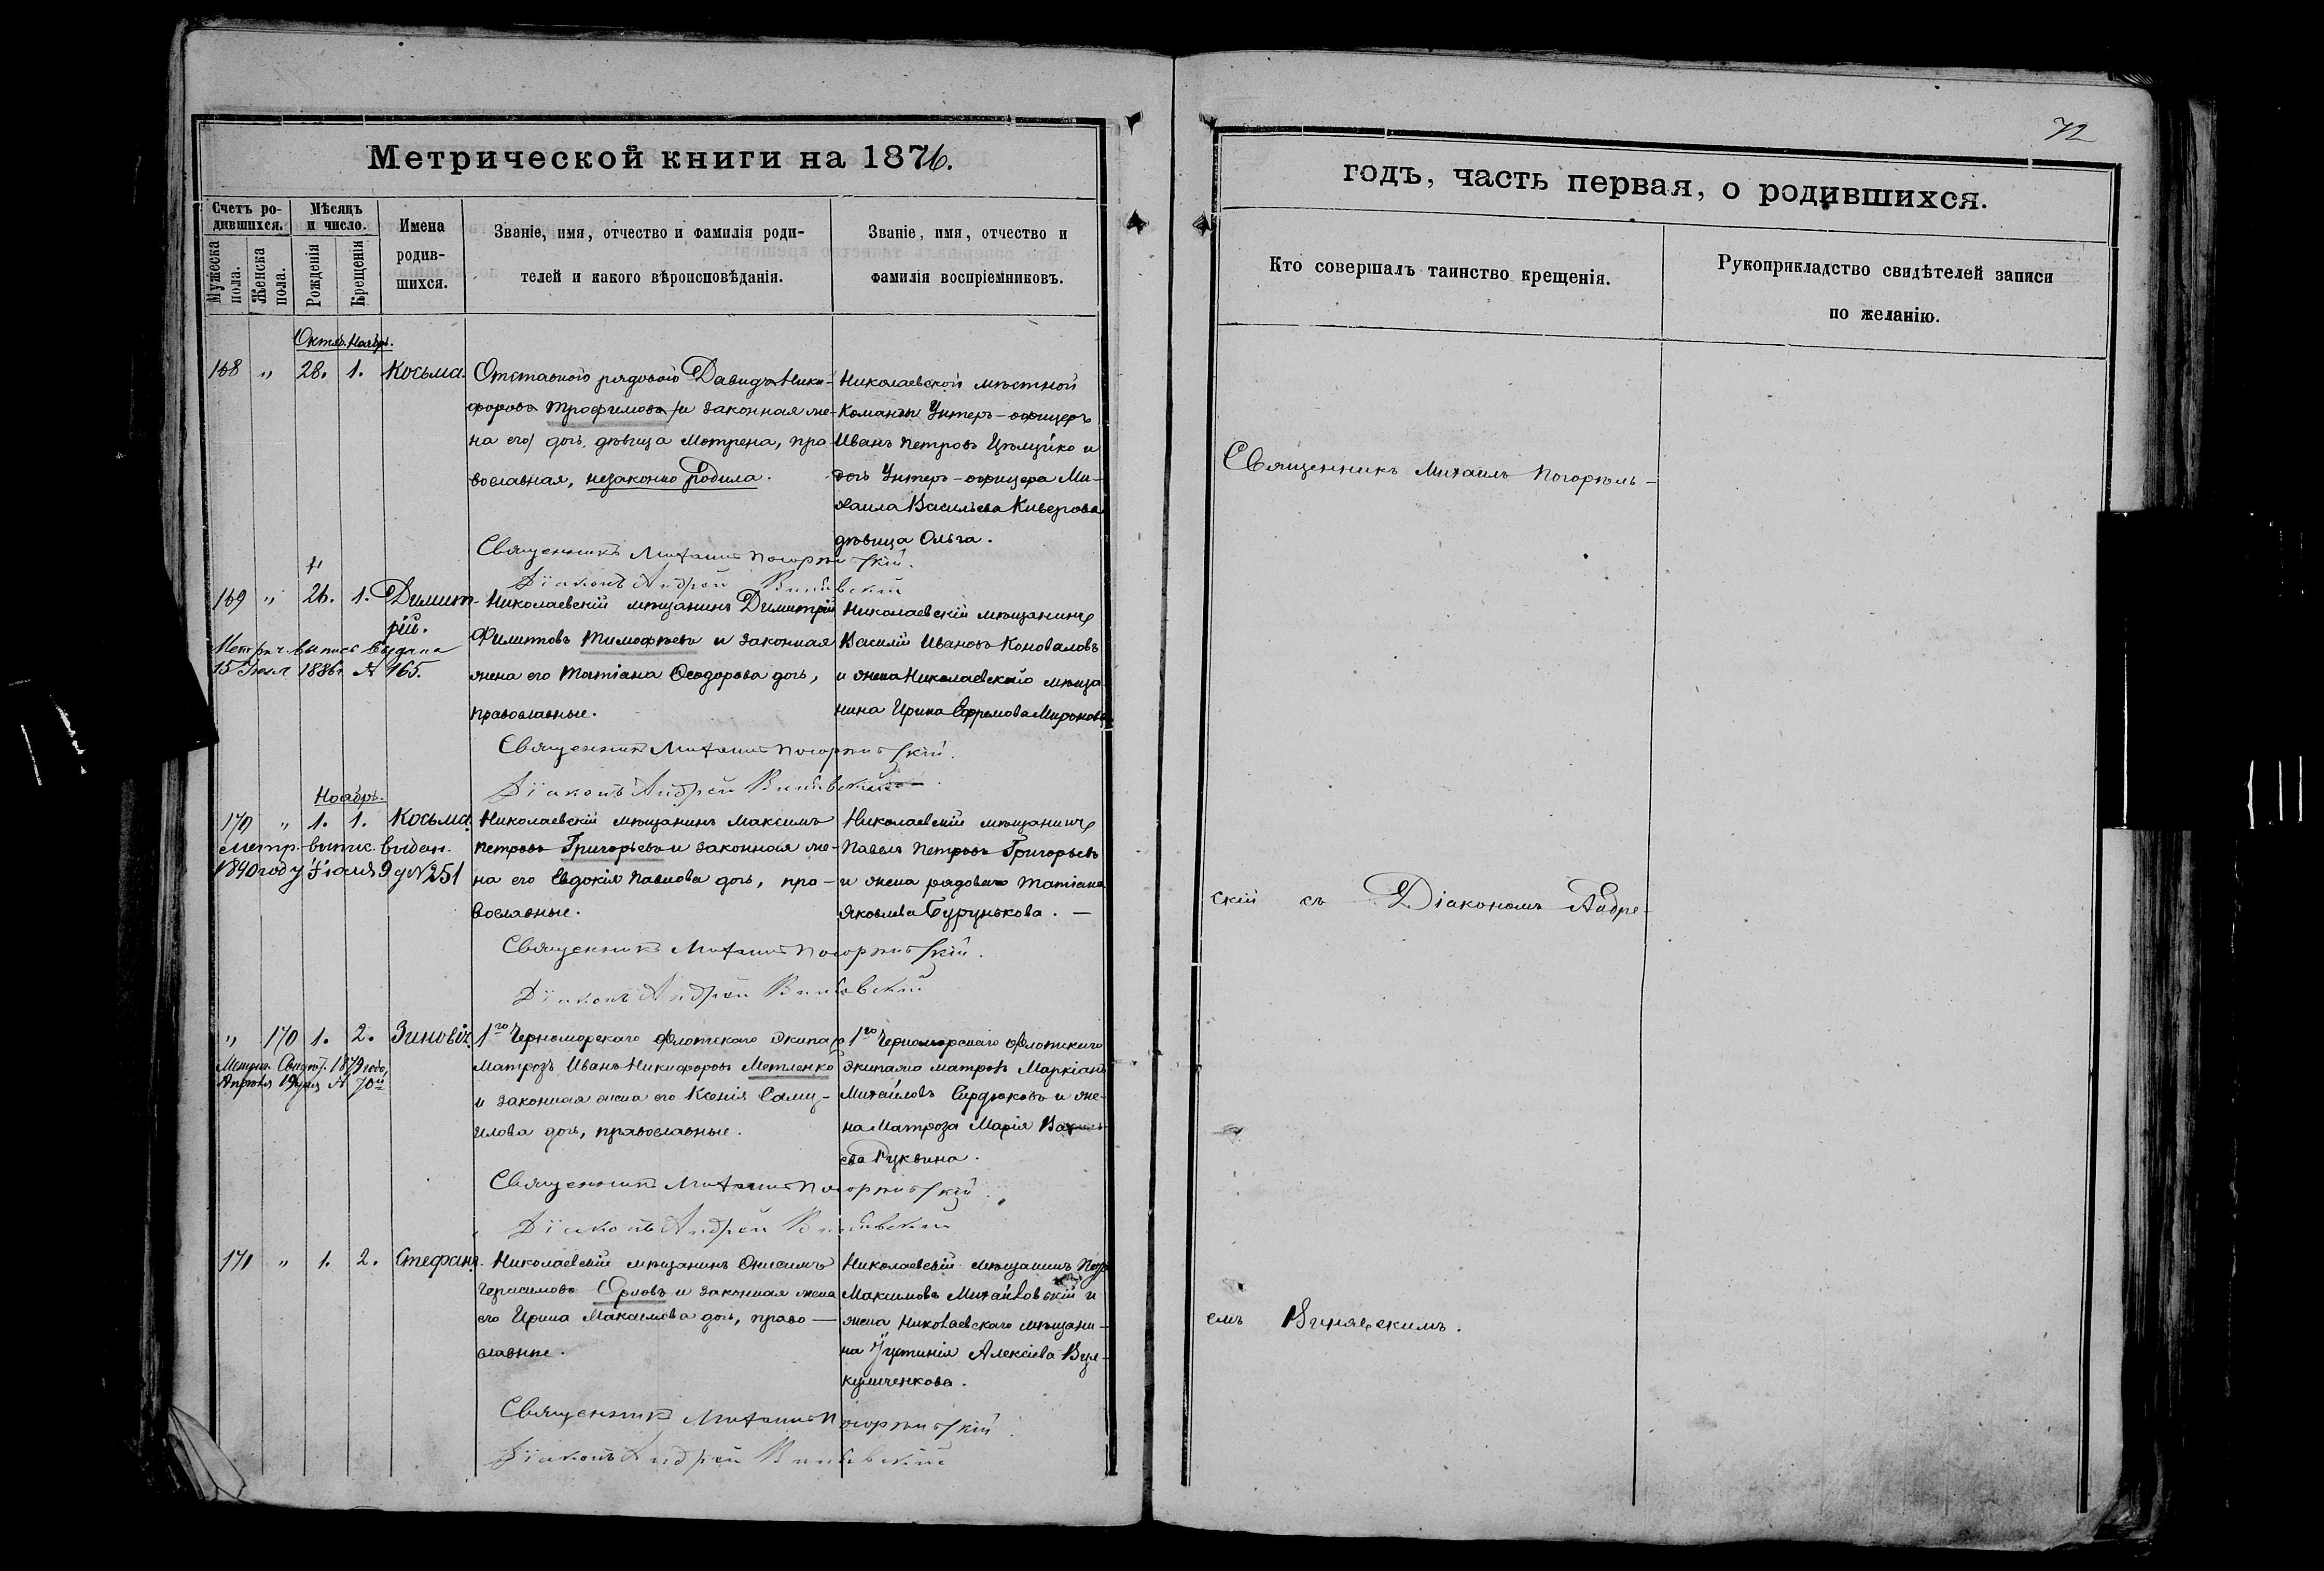 Метрической книги на 1876.
Счетъ ро-
дившихся.
Мѣсяцъ
и число.
Мужеска
пола.
Женска
пола.
Рожденія
Крещенія
Имена
родив-
шихся.
Званіе, имя, отчество и фамилія роди-
телей и какого вѣроисповѣданія.
Званіе, имя, отчество и
фамилія воспріемниковъ.
Октяб. Ноябрь.
168 „ 28. 1. Косьма.
Отставного рядового Давида Ники-
форова Трофимова /и законная же-
на его/ дочь, дѣвица Мотрена, пра-
вославная, незаконно родила.
Николаевской мѣстной
Команды Унтеръ-офицеръ
Иванъ Петровъ и
дочь Унтеръ-офицера Ми-
хаила Васильева Киверова
дѣвица Ольга.
Священникъ Михаилъ Погорѣльскій.
Діаконъ Андрей
169 „ 26. 1. Димит-
рій.
Метрич. выпись выдана
15 1886 г. № 165.
Николаевскій мѣщанинъ Димитрій
Филиповъ Тимофѣевъ и законная
жена его Татіана Ѳеодорова дочь,
православные.
Николаевскій мѣщанинъ
Василій Ивановъ Коноваловъ
и жена Николаевскаго мѣща-
нина Ирина Ефремова Миронова.
Священникъ Михаилъ Погорѣльскій.
Діаконъ Андрей
Ноябрь.
170 „ 1. 1. Косьма.
Метр. выпис. выдан.
1890 году Іюля 9 д № 251
Николаевскій мѣщанинъ Максимъ
Петровъ Григорьевъ и законная же-
на его Евдокія Павлова дочь, пра-
вославные.
Николаевскій мѣщанинъ
Павелъ Петровъ Григорьевъ
и жена рядового Татіана
Яковлева Бурунькова. —
Священникъ Михаилъ Погорѣльскій.
Діаконъ Андрей
„ 170 1. 2. Зиновія.
Метрич. Свидѣт. 1879 года,
Апрѣля 19 дня № 70й
1го Черноморскаго Флотскаго Экипажа
Матрозъ Иванъ Никифоровъ Метленко
и законная жена его Ксенія Саму-
илова дочь, православные.
1го Черноморскаго Флотскаго
экипажа матрозъ Маркіанъ
Михайловъ Сердюковъ и же-
на Матроза Марія Василь-
ева Руквина.
Священникъ Михаилъ Погорѣльскій.
Діаконъ Андрей
171 „ 1. 2. Стефанъ.
Николаевскій мѣщанинъ Онисимъ
Герасимовъ Орловъ и законная жена
его Ирина Максимова дочь, право-
славные.
Николаевскій мѣщанинъ
Максимовъ Михайловскій и
жена Николаевскаго мѣщани-
на Іустинія Алексіева
Священникъ Михаилъ Погорѣльскій.
Діаконъ Андрей
72
годъ, часть первая, о родившихся.
Кто совершалъ таинство крещенія.
Рукоприкладство свидѣтелей записи
по желанію.
Священникъ Михаилъ Погорѣль-
скій съ Діакономъ Андре-
емъ